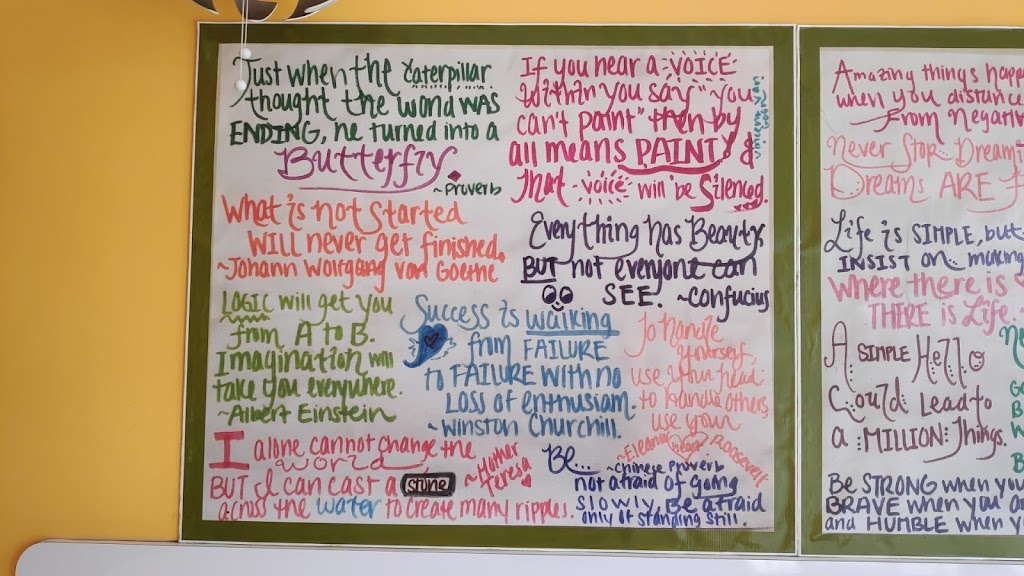 Just when the caterpillar
thought the world WAS
ENDING, he turned into a
Butterfly.
~Proverb
If you hear a VOICE
within you say "you
can't paint" then by
all means PAINT &
that voice will be Silenced.
Vincent Van Gogh
What is not started
WILL never get finished.
~Johann Wolfgang von Goethe
Everything has Beauty,
BUT not everyone can
SEE. ~Confucius
LOGIC will get you
from A to B.
Imagination will
take you everywhere.
~Albert Einstein
Success is walking
from FAILURE
to FAILURE WITH NO
LOSS OF enthusiasm.
~Winston Churchill.
To handle
yourself,
use your head;
to handle others,
use your
heart.
~Eleanor Roosevelt
I alone cannot change the
world,
BUT I can cast a stone
across the water to create many ripples.
~Mother
Teresa
Be...
~Chinese Proverb
not afraid of going
slowly, Be afraid
only of standing still.
Amazing things happ
when you distance
from negativ
Never Stop Dreami
Dreams ARE
Life is SIMPLE, but
INSIST on making
where there is
THERE is Life.
A SIMPLE Hello
Could Lead to
a MILLION Things.
Be STRONG when you
BRAVE when you
and HUMBLE when y